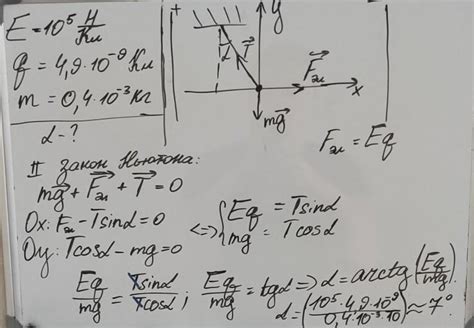 E = 10⁵ Н/Кл
q = 4,9·10⁻⁹ Кл
m = 0,4·10⁻³ кг
α - ?
+
y
α
T
Fэл
x
mg
Fэл = Eq
II закон Ньютона:
mg + Fэл + T = 0
Ox: Fэл - Tsinα = 0
Oy: Tcosα - mg = 0
<=> { Eq = Tsinα
mg = Tcosα
Eq/mg = Tsinα/Tcosα ; Eq/mg = tgα => α = arctg(Eq/mg)
α = (10⁵·4,9·10⁻⁹/0,4·10⁻³·10) ≈ 7°